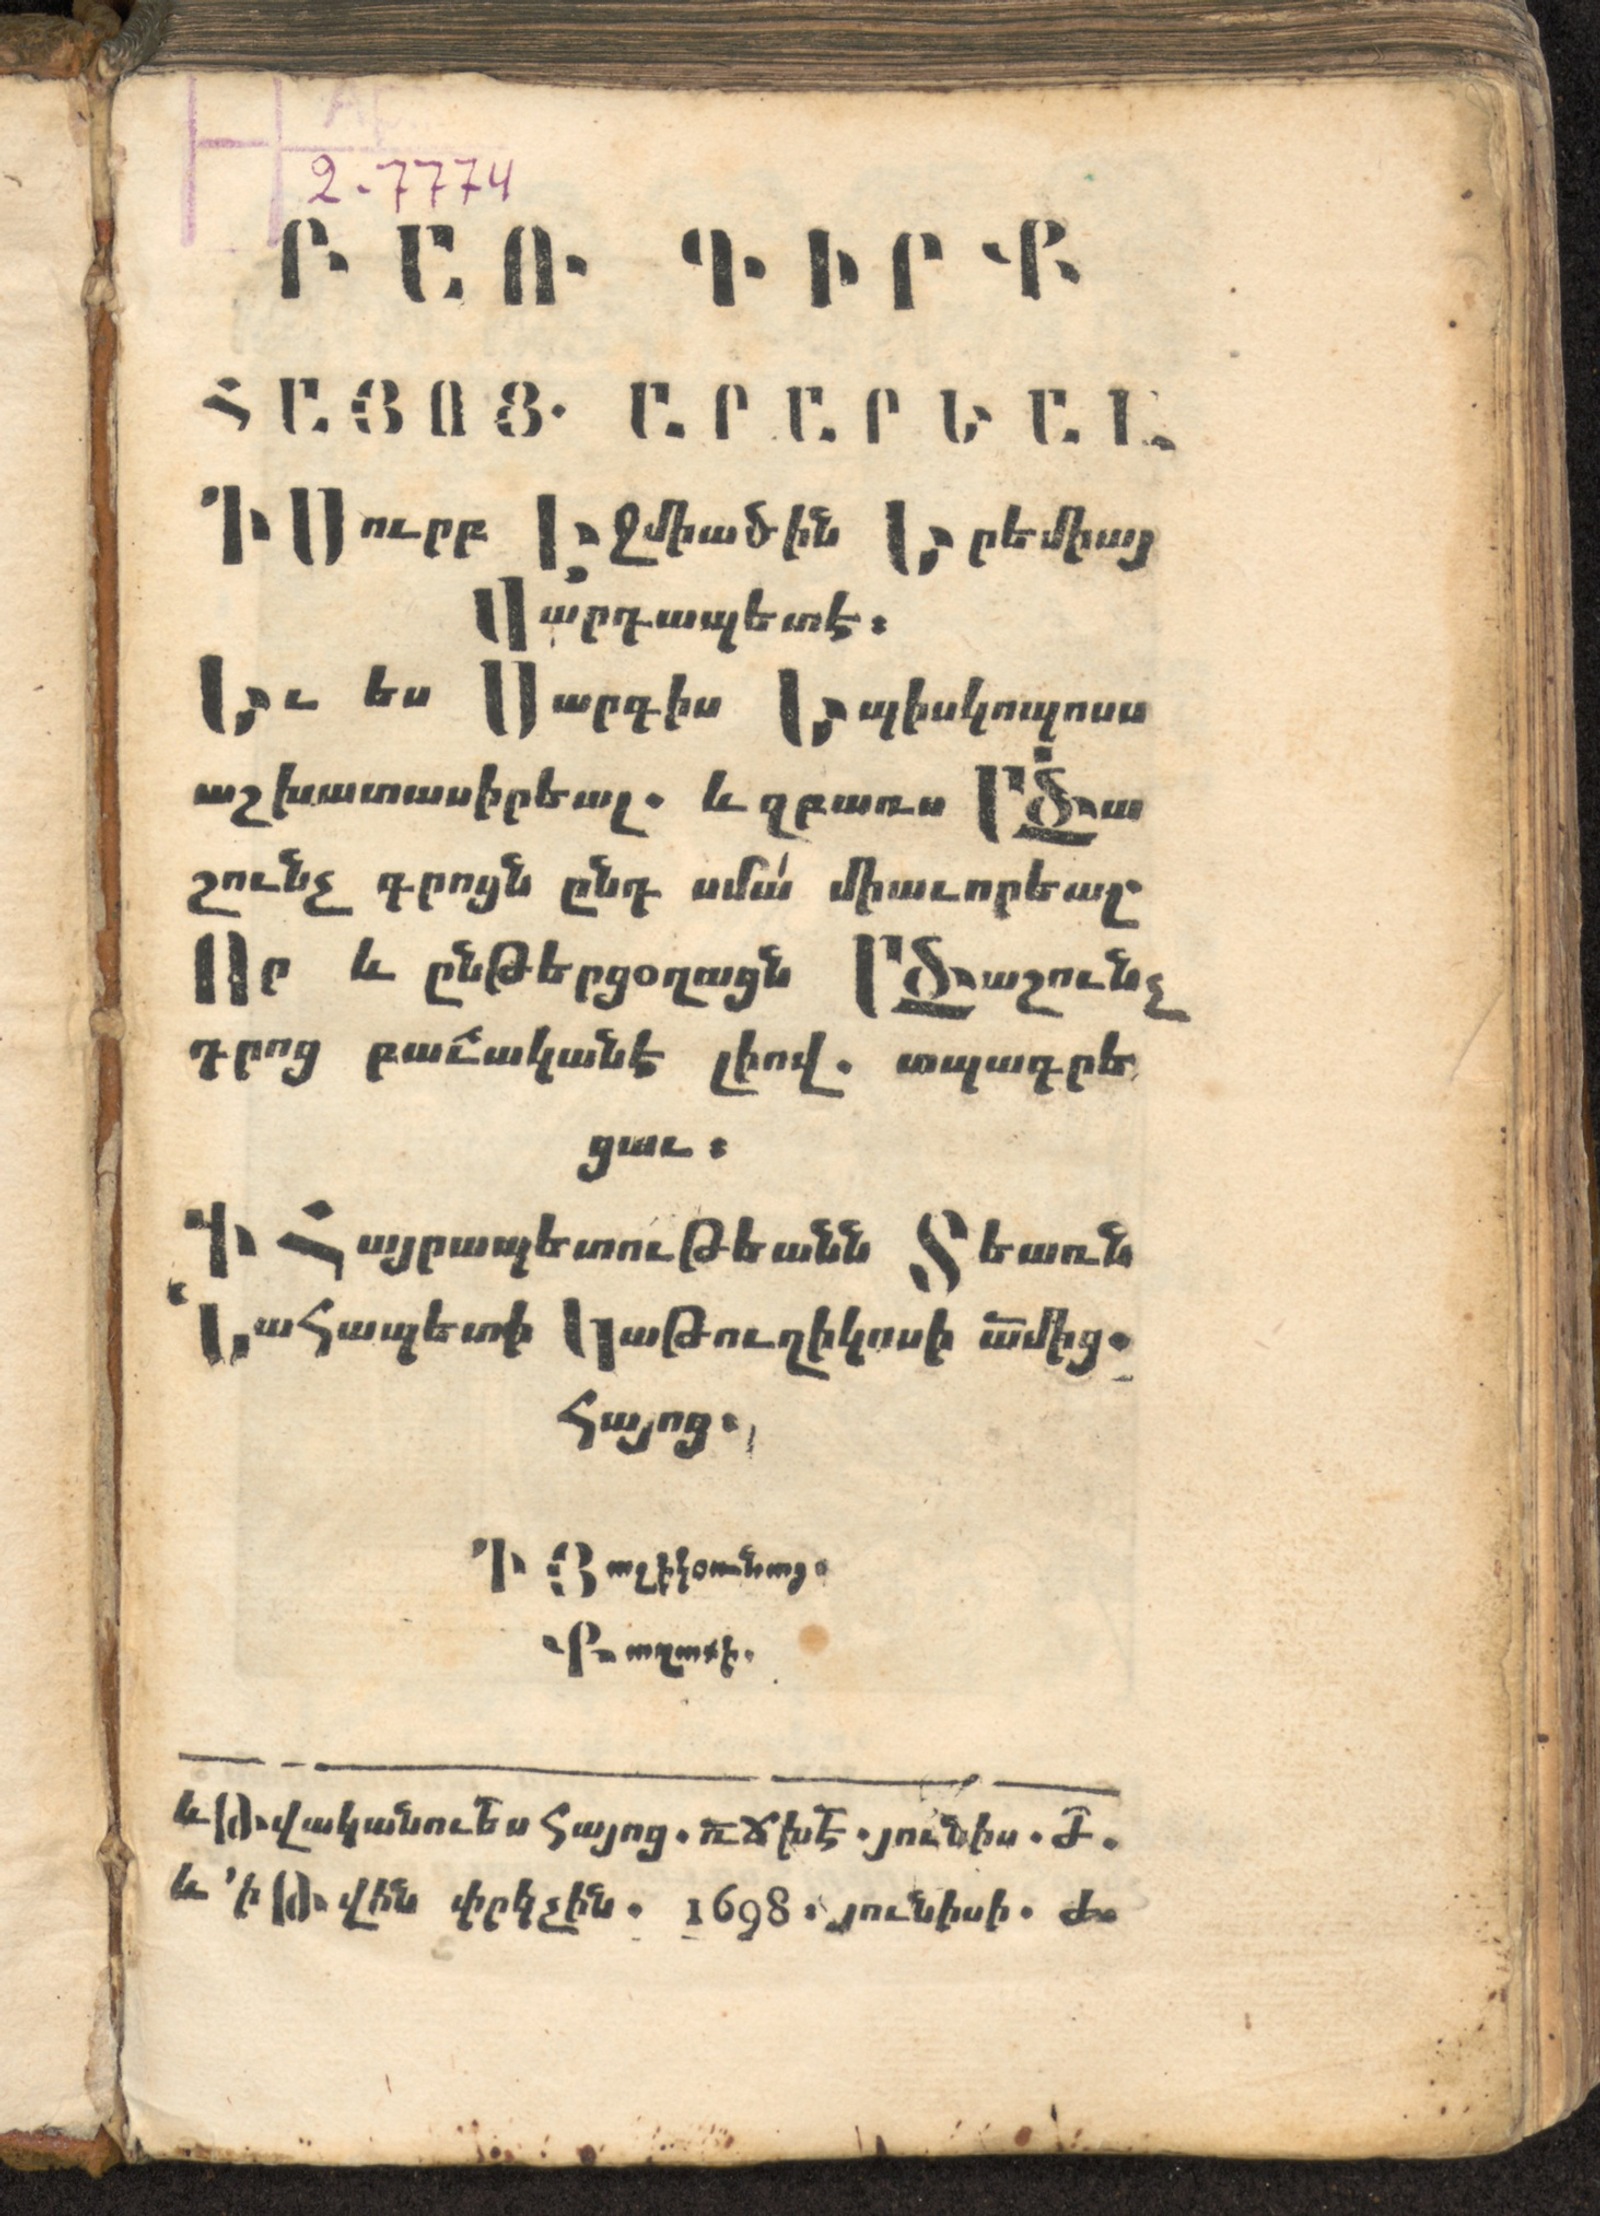 Н Ар.
2-7774
ԲԱՌ ԳԻՐՔ
ՀԱՅՈՑ. ԱՐԱՐԵԱԼ
Ի Սուրբ Էջմիածին Երեմիայ
Վարդապետէ։
Եւ ես Սարգիս Եպիսկոպոսս
աշխատասիրեալ. և զբառս Ա՟ծա
շունչ գրոյն ընդ սմա՛ միաւորեալ.
Որ և ընթերցօղացն Ա՟ծաշունչ
գրոց բաւականէ լիով. տպագրե
ցաւ։
Ի Հայրապետութեանն Տեառն
Նահապետի Կաթուղիկոսի ա՟մից.
Հայոց։
Ի Յալիկօռնայ.
Քաղաքի.
և Թվականութես Հայոց. ՌՃԽԷ. յունիս. Ժ.
և ՚ի Թվին փրկչին. 1698։ յունիսի. Ժ